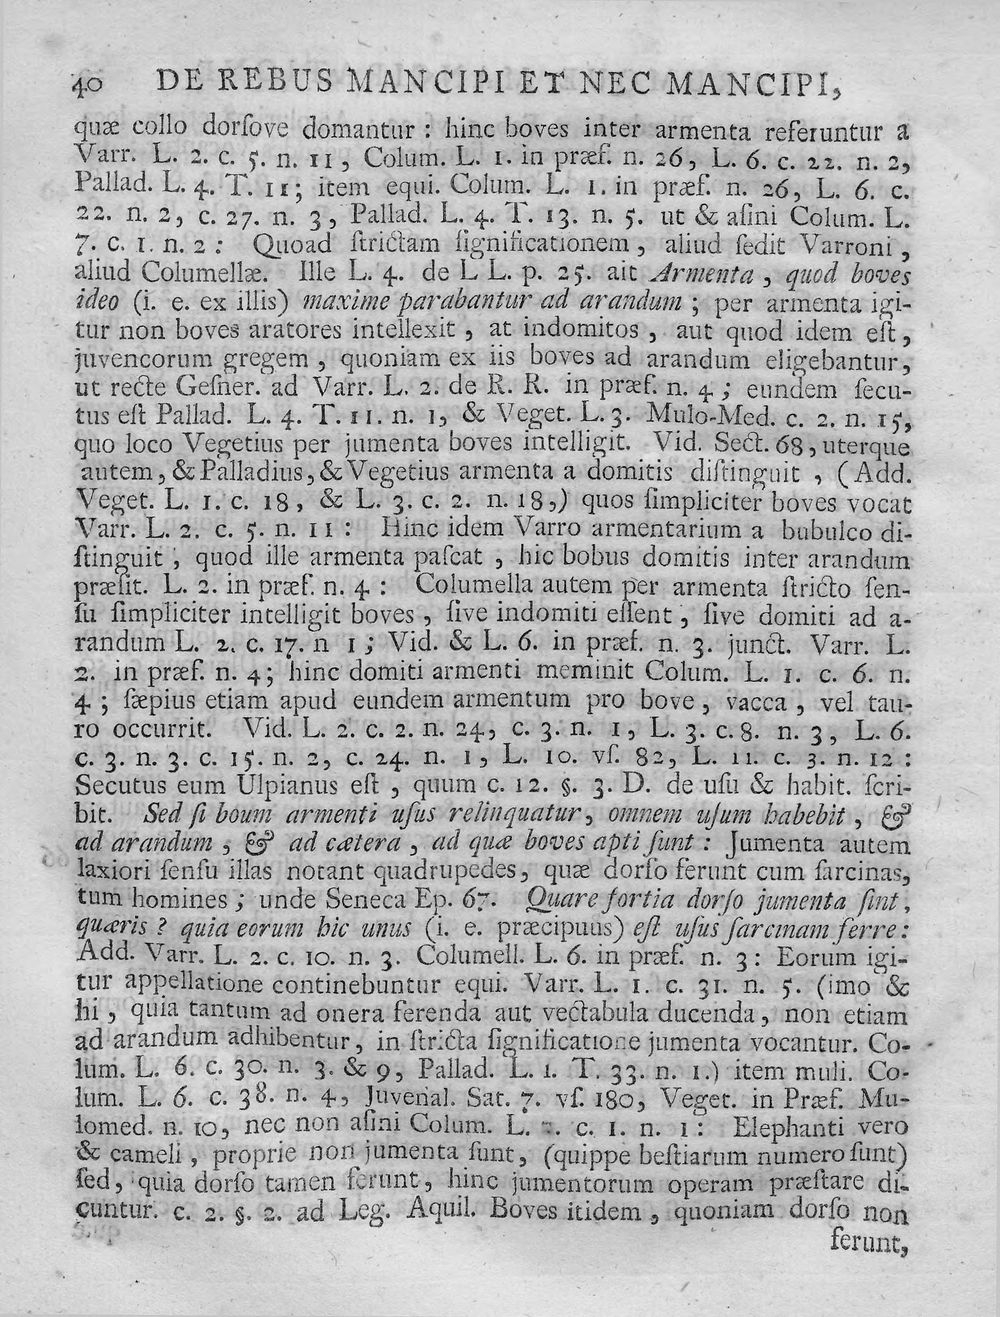 40 DE REBUS MANCIPI ET NEC MANCIPI,
quæ collo dorſove domantur : hinc boves inter armenta referuntur a
Varr. L. 2. c. 5. n. 11, Colum. L. 1. in præf. n. 26, L. 6. c. 22. n. 2,
Pallad. L. 4. T. 11; item equi. Colum. L. 1. in præf. n. 26, L. 6. c.
22. n. 2, c. 27. n. 3, Pallad. L. 4. T. 13. n. 5. ut & aſini Colum. L.
7. c. 1. n. 2 : Quoad ſtrictam ſignificationem, aliud ſedit Varroni,
aliud Columellæ. Ille L. 4. de L L. p. 25. ait Armenta, quod boves
ideo (i. e. ex illis) maxime parabantur ad arandum ; per armenta igi-
tur non boves aratores intellexit, at indomitos, aut quod idem eſt,
juvencorum gregem, quoniam ex iis boves ad arandum eligebantur,
ut recte Geſner. ad Varr. L. 2. de R. R. in præf. n. 4 ; eundem ſecu-
tus eſt Pallad. L. 4. T. 11. n. 1, & Veget. L. 3. Mulo-Med. c. 2. n. 15,
quo loco Vegetius per jumenta boves intelligit. Vid. Sect. 68, uterque
autem, & Palladius, & Vegetius armenta a domitis diſtinguit, (Add.
Veget. L. 1. c. 18, & L. 3. c. 2. n. 18,) quos ſimpliciter boves vocat
Varr. L. 2. c. 5. n. 11 : Hinc idem Varro armentarium a bubulco di-
ſtinguit, quod ille armenta paſcat, hic bobus domitis inter arandum
præſit. L. 2. in præf. n. 4 : Columella autem per armenta ſtricto ſen-
ſu ſimpliciter intelligit boves, ſive indomiti eſſent, ſive domiti ad a-
randum L. 2. c. 17. n 1 ; Vid. & L. 6. in præf. n. 3. junct. Varr. L.
2. in præf. n. 4; hinc domiti armenti meminit Colum. L. 1. c. 6. n.
4 ; ſæpius etiam apud eundem armentum pro bove, vacca, vel tau-
ro occurrit. Vid. L. 2. c. 2. n. 24, c. 3. n. 1, L. 3. c. 8. n. 3, L. 6.
c. 3. n. 3. c. 15. n. 2, c. 24. n. 1, L. 10. vſ. 82, L. 11. c. 3. n. 12 :
Secutus eum Ulpianus eſt, quum c. 12. §. 3. D. de uſu & habit. ſcri-
bit. Sed ſi boum armenti uſus relinquatur, omnem uſum habebit, &
ad arandum, & ad cætera, ad quæ boves apti ſunt : Jumenta autem
laxiori ſenſu illas notant quadrupedes, quæ dorſo ferunt cum ſarcinas,
tum homines ; unde Seneca Ep. 67. Quare fortia dorſo jumenta ſint,
quæris ? quia eorum hic unus (i. e. præcipuus) eſt uſus ſarcinam ferre :
Add. Varr. L. 2. c. 10. n. 3. Columell. L. 6. in præf. n. 3 : Eorum igi-
tur appellatione continebuntur equi. Varr. L. 1. c. 31. n. 5. (imo &
hi, quia tantum ad onera ferenda aut vectabula ducenda, non etiam
ad arandum adhibentur, in ſtricta ſignificatione jumenta vocantur. Co-
lum. L. 6. c. 30. n. 3. & 9, Pallad. L. 1. T. 33. n. 1.) item muli. Co-
lum. L. 6. c. 38. n. 4, Juvenal. Sat. 7. vſ. 180, Veget. in Præf. Mu-
lomed. n. 10, nec non aſini Colum. L. c. 1. n. 1 : Elephanti vero
& cameli, proprie non jumenta ſunt, (quippe beſtiarum numero ſunt)
ſed, quia dorſo tamen ferunt, hinc jumentorum operam præſtare di-
cuntur. c. 2. §. 2. ad Leg. Aquil. Boves itidem, quoniam dorſo non
ferunt,